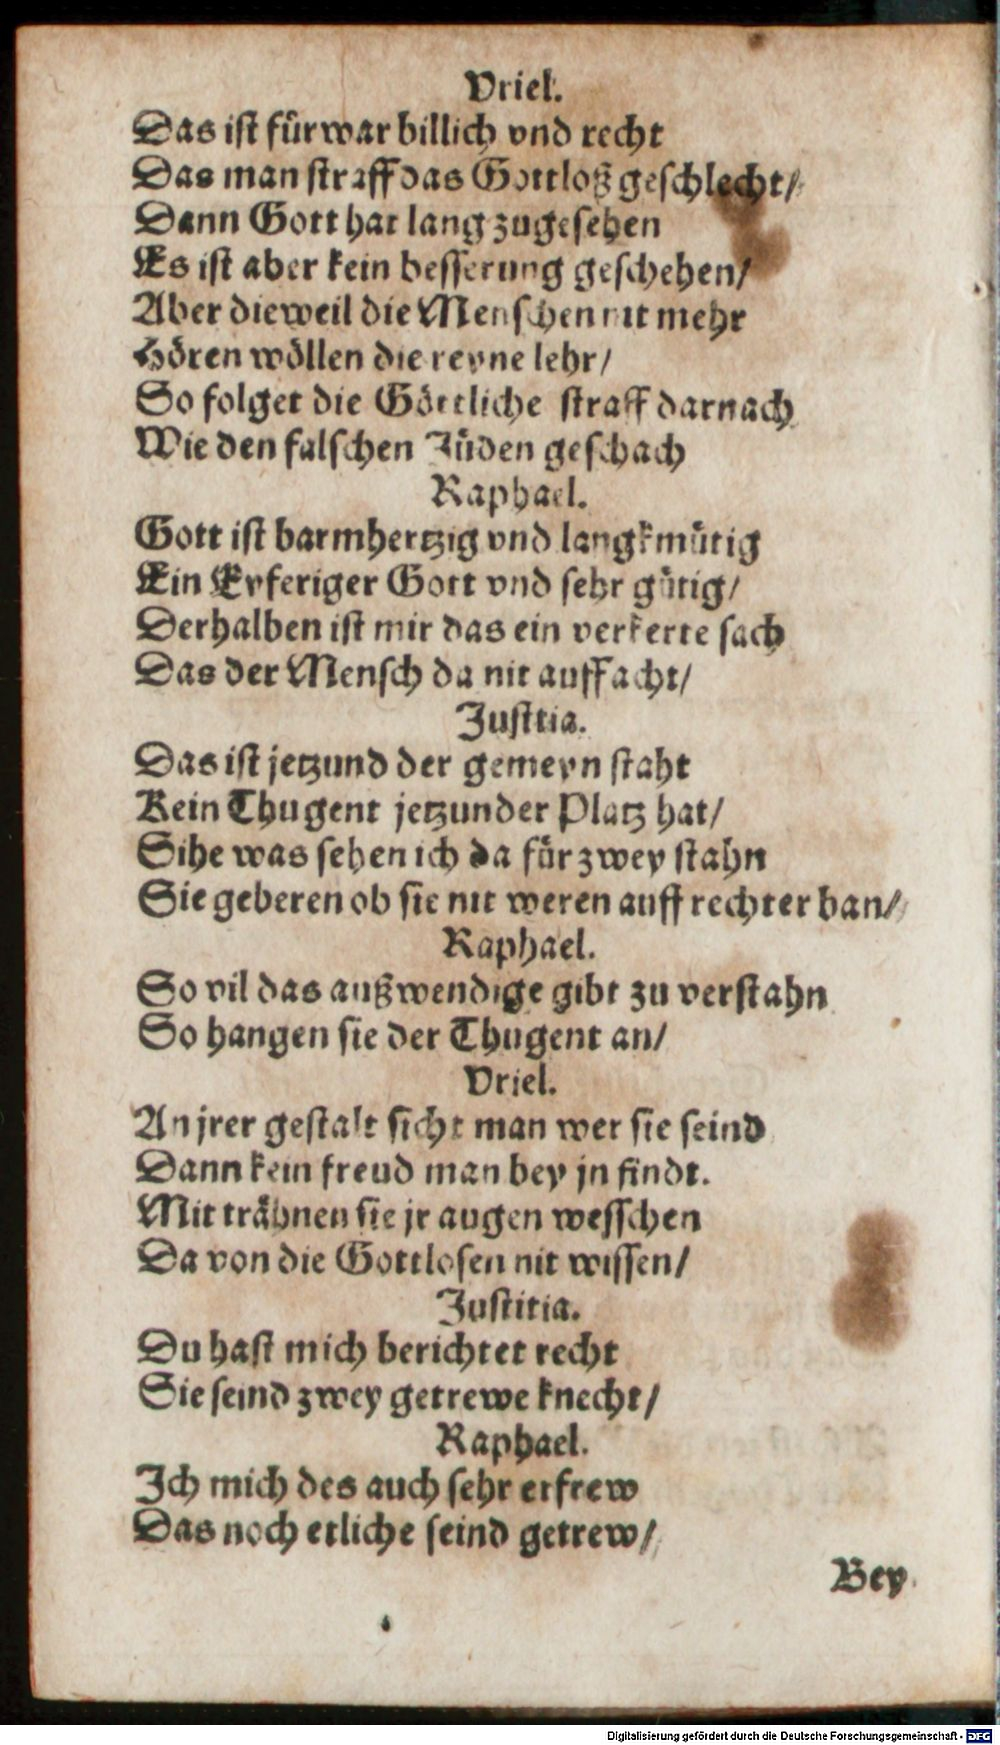 Vriel.
Das ist fürwar billich vnd recht
Das man straff das Gottloß geschlecht/
Dann Gott hat lang zugesehen
Es ist aber kein besserung geschehen/
Aber dieweil die Menschen nit mehr
Hören wöllen die reyne lehr/
So folget die Göttliche straff darnach
Wie den falschen Jüden geschach
Raphael.
Gott ist barmhertzig vnd langkmütig
Ein Eyferiger Gott vnd sehr gütig/
Derhalben ist mir das ein verkerte sach
Das der Mensch da nit auff acht/
Justtia.
Das ist jetzund der gemeyn staht
Kein Thugent jetzunder Platz hat/
Sihe was sehen ich da für zwey stahn
Sie geberen ob sie nit weren auff rechter ban/
Raphael.
So vil das außwendige gibt zu verstahn
So hangen sie der Thugent an/
Vriel.
An jrer gestalt sicht man wer sie seind
Dann kein freud man bey jn findt.
Mit trähnen sie jr augen wesschen
Da von die Gottlosen nit wissen/
Justitia.
Du hast mich berichtet recht
Sie seind zwey getrewe knecht/
Raphael.
Ich mich des auch sehr erfrew
Das noch etliche seind getrew/
Bey
Digitalisierung gefördert durch die Deutsche Forschungsgemeinschaft - DFG